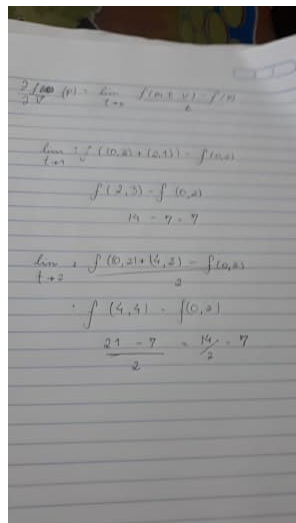 ∂f/∂v (p) = lim t→0 f(p+t v) - f(p) / t
lim t→1 : f((0,2)+(2,1)) - f(0,2)
f(2,3) - f(0,2)
14 - 7 = 7
lim t→2 : f((0,2)+(4,2)) - f(0,2) / 2
f(4,4) - f(0,2)
21 - 7 / 2 = 14/2 = 7